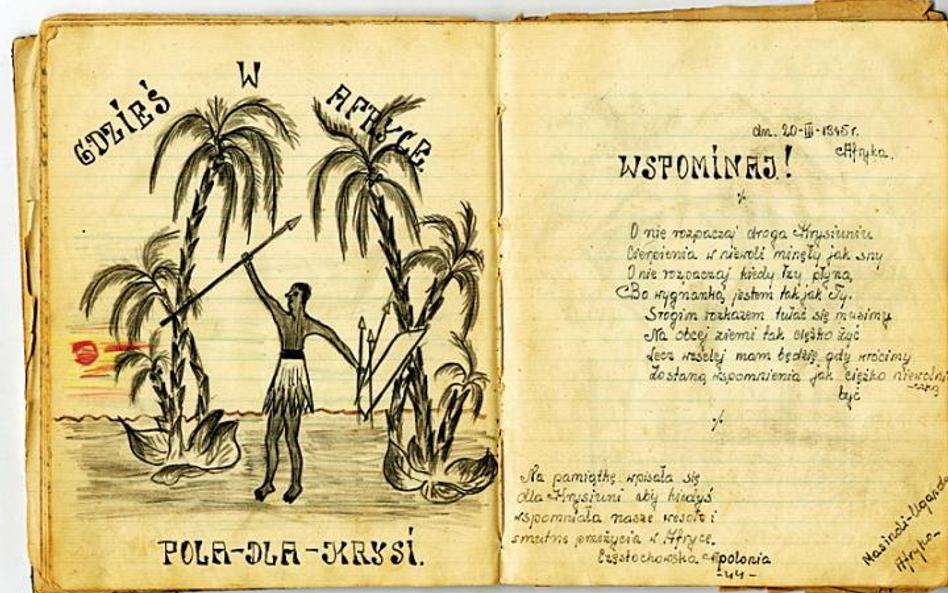 GDZIEŚ W AFRYCE
POLA-DLA-KRYSI.
dn. 20-III-1945 r.
Afryka.
WSPOMINAJ!
O nie rozpaczaj droga Krysiuniu
Cierpienia w niewoli minęły jak sny
O nie rozpaczaj kiedy łzy płyną
Bo wygnanką jestem tak jak Ty.
Srogim rozkazem tułać się musimy
Na obcej ziemi tak ciężko żyć
Lecz weselej nam będzie gdy wrócimy
Zostaną wspomnienia jak ciężko niewolni-
-cą
być
Na pamiątkę wpisała się
dla Krysiuni aby kiedyś
wspomniała nasze wesołe i
smutne przeżycia w Afryce.
Częstochowska Apolonia
-44-
Masindi-Uganda
Afryka-